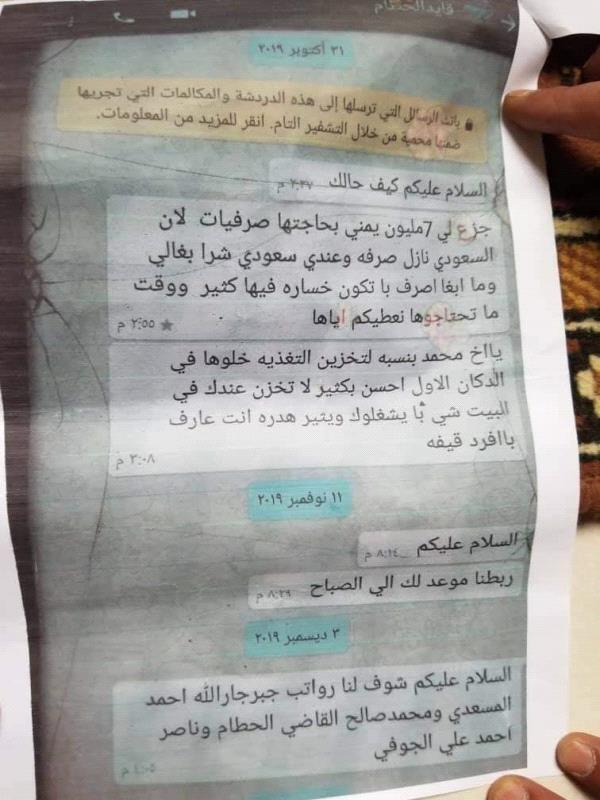 قايدالحطام
٣١ أكتوبر ٢٠١٩
باتت الرسائل التي ترسلها إلى هذه الدردشة والمكالمات التي تجريها
ضمنها محمية من خلال التشفير التام. انقر للمزيد من المعلومات.
السلام عليكم كيف حالك ٢:٢٧ م
جزع لي 7مليون يمني بحاجتها صرفيات لان
السعودي نازل صرفه وعندي سعودي شرا بغالي
وما ابغا اصرف با تكون خساره فيها كثير ووقت
ما تحتاجوها نعطيكم اياها
٢:٥٥ م
يااخ محمد بنسبه لتخزين التغذيه خلوها في
الدكان الاول احسن بكثير لا تخزن عندك في
البيت شي با يشغلوك ويثير هدره انت عارف
باافرد قيفه
٣:٠٨ م
١١ نوفمبر ٢٠١٩
السلام عليكم ٨:١٤ م
ربطنا موعد لك الي الصباح ٨:٢٩ م
٣ ديسمبر ٢٠١٩
السلام عليكم شوف لنا رواتب جبرجارالله احمد
المسعدي ومحمدصالح القاضي الحطام وناصر
احمد علي الجوفي
٤:٠٥ م